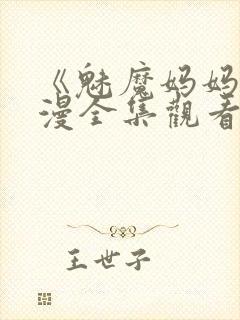 《魅魔妈妈
漫全集觀看
王世子